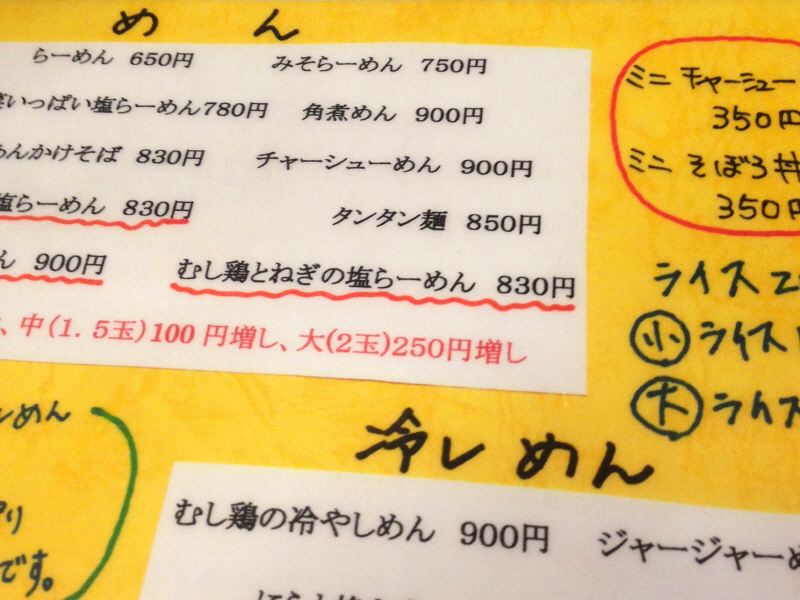 めん
らーめん 650円 みそらーめん 750円
いっぱい塩らーめん780円 角煮めん 900円
んかけそば 830円 チャーシューめん 900円
塩らーめん 830円 タンタン麺 850円
ん 900円 むし鶏とねぎの塩らーめん 830円
、中(1.5玉)100円増し、大(2玉)250円増し
ミニ チャーシュー
350円
ミニ そぼろ丼
350円
ライス
小 ライス
大 ライス
めん
です。
冷しめん
むし鶏の冷やしめん 900円 ジャージャーめ